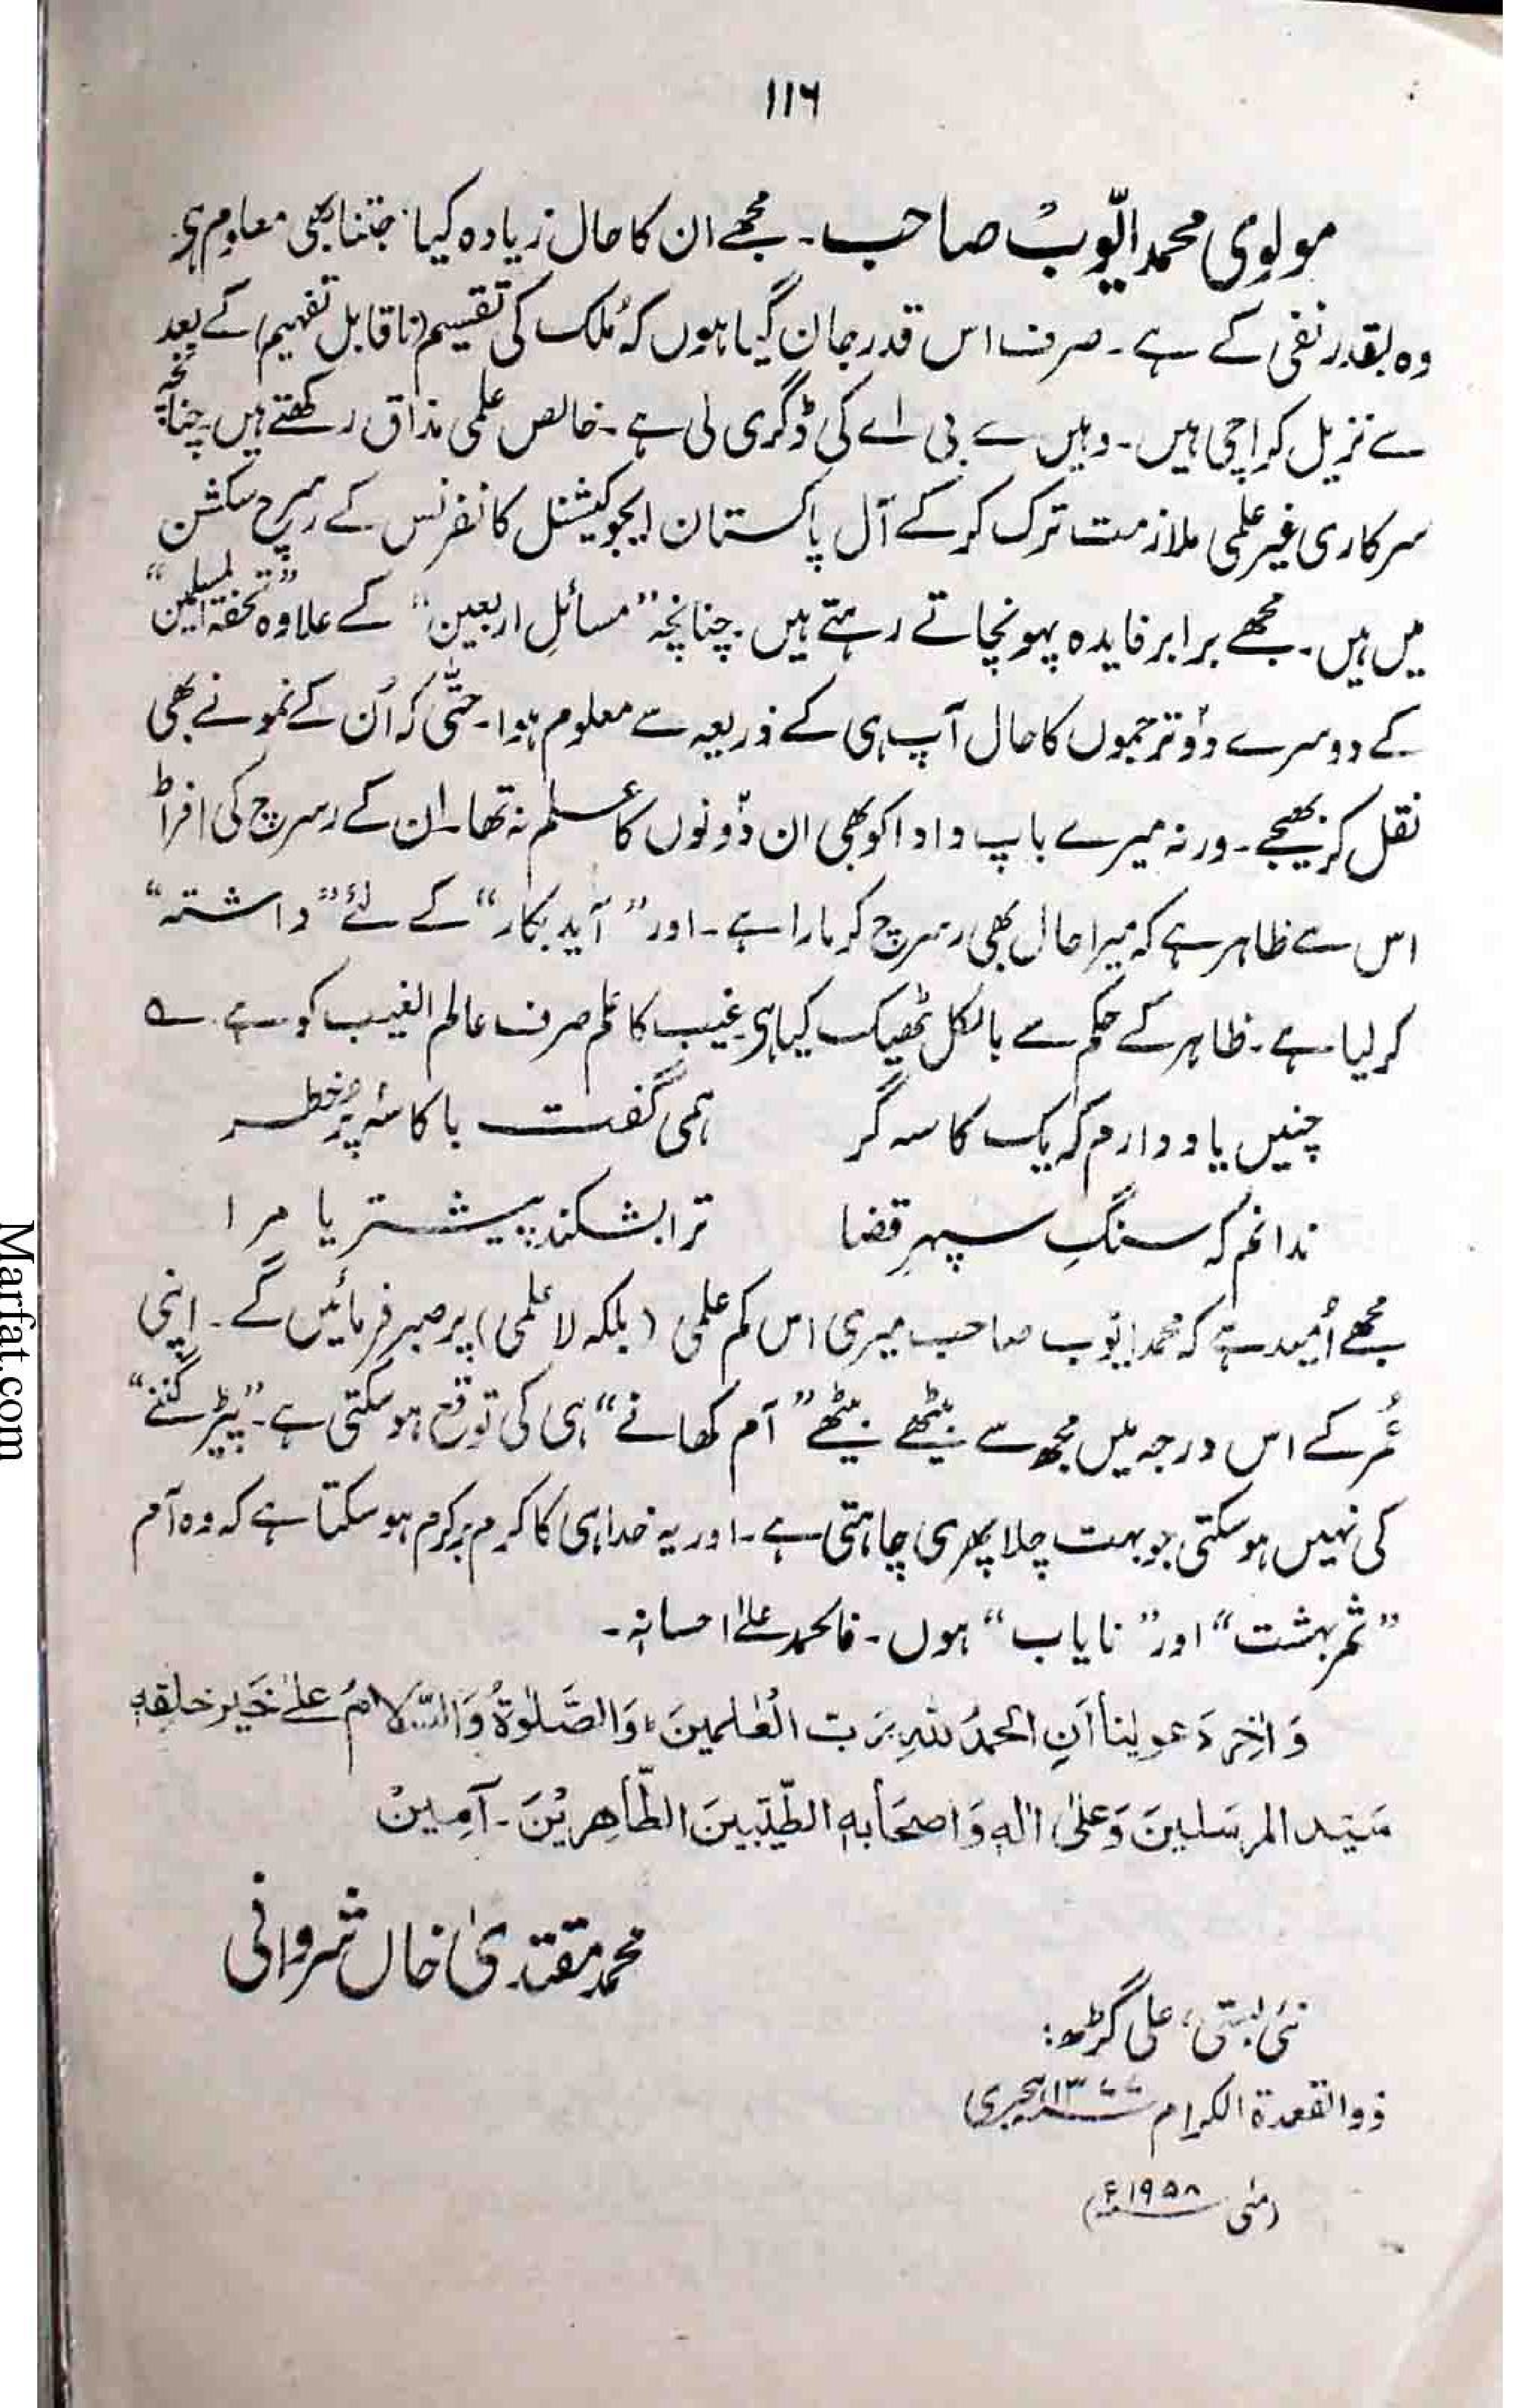 ۱۱۶
مولوی محمد ایّوب صاحب۔ مجھے ان کا حال زیادہ کیا، جتنا بھی معلوم ہی
وہ بقدر نفی کے ہے۔ صرف اس قدر جان گیا ہوں کہ مُلک کی تقسیم (ناقابل تفہیم) کے بعد
سے نزیل کراچی ہیں۔ وہیں سے بی اے کی ڈگری لی ہے۔ خالص علمی مذاق رکھتے ہیں۔ چنانچہ
سرکاری غیر علمی ملازمت ترک کرکے آل پاکستان ایجوکیشنل کانفرنس کے ریسرچ سکشن
میں ہیں۔ مجھے برابر فایدہ پہونچاتے رہتے ہیں۔ چنانچہ ”مسائلِ اربعین“ کے علاوہ ”تحفۃ المسلمین“
کے دوسرے دو ترجموں کا حال آپ ہی کے ذریعہ سے معلوم ہوا۔ حتّٰی کہ اُن کے نمونے بھی
نقل کر بھیجے۔ ورنہ میرے باپ دادا کو بھی ان دونوں کا علم نہ تھا۔ ان کے رسرچ کی افراط
اس سے ظاہر ہے کہ میرا حال بھی رسرچ کر مارا ہے۔ اور ”آید بکار“ کے لئے ”داشتہ“
کر لیا ہے۔ ظاہر کے حکم سے بالکل ٹھیک کیا ہی۔ غیب کا علم صرف عالم الغیب کو ہے۔ ؎
چنیں یاد دارم کہ یک کاسہ گر ہمی گفت با کاسۂ پرخطر
ندانم کہ سنگِ سپہرِ قضا ترا بشکند پیشتر یا مرا
مجھے اُمید ہے کہ محمد ایوب صاحب میری اس کم علمی (بلکہ لا علمی) پر صبر فرمائیں گے۔ اپنی
عُمر کے اس درجہ میں مجھ سے بیٹھے بیٹھے ”آم کھانے“ ہی کی توقع ہو سکتی ہے۔ ”پیڑ گننے“
کی نہیں ہو سکتی جو بہت چلا پھری چاہتی ہے۔ اور یہ خدا ہی کا کرم بر کرم ہو سکتا ہے کہ وہ آم
”ثمر بہشت“ اور ”نایاب“ ہوں۔ فالحمد علےٰ احسانہ۔
وَ اٰخِرُ دَعوٰینا أَنِ الحمدُ للہِ رَبّ العٰلمینَ، وَالصَّلوٰۃُ وَالسَّلامُ علےٰ خَیرِ خلقِہٖ
سَیّد المرسَلینَ وَعلیٰ اٰلہٖ وَاصحَابہٖ الطَّیّبینَ الطّاھِرِیْنَ۔ آمِینْ
محمد مقتدیٰ خاں شروانی
نئی بستی، علی گڑھ:
ذوالقعدۃ الکرام ۱۳۷۷ ہجری
(مئی ۱۹۵۸ء)
Marfat.com